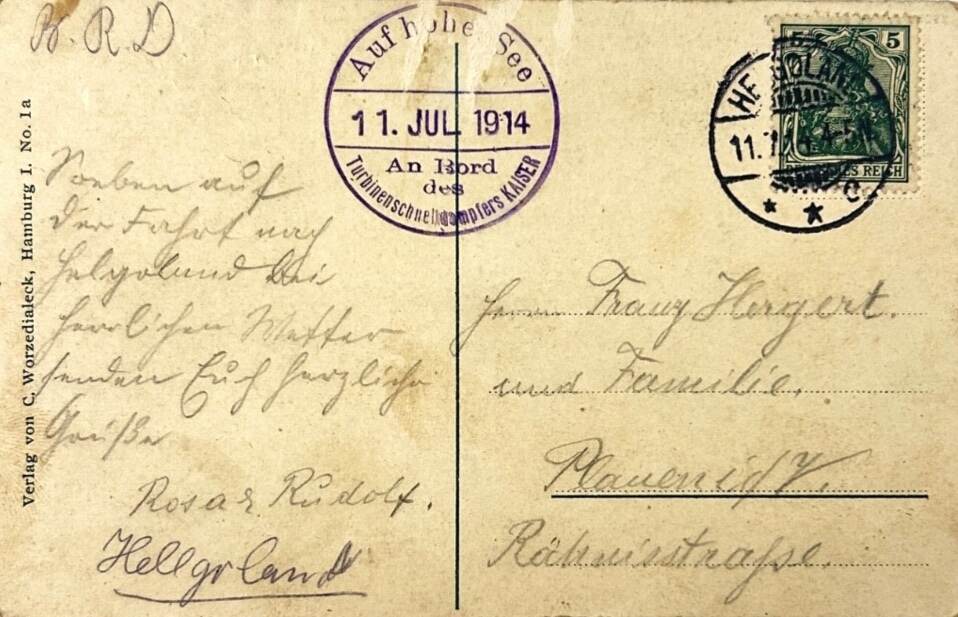 B. R. D
Auf hoher See
11. JUL. 1914
An Bord
des
Turbinenschnelldampfers KAISER
5 5
HELGOLAND
11.7.14. 4-5N
Verlag von C. Worzedialeck, Hamburg I. No. 1a
Soeben auf
der Fahrt nach
Helgoland bei
herrlichen Wetter
senden Euch herzliche
Grüße
Rosa & Rudolf.
Hellgoland
Herrn Franz Hergert.
und Familie.
Plauen i/V.
Rähnisstraße.